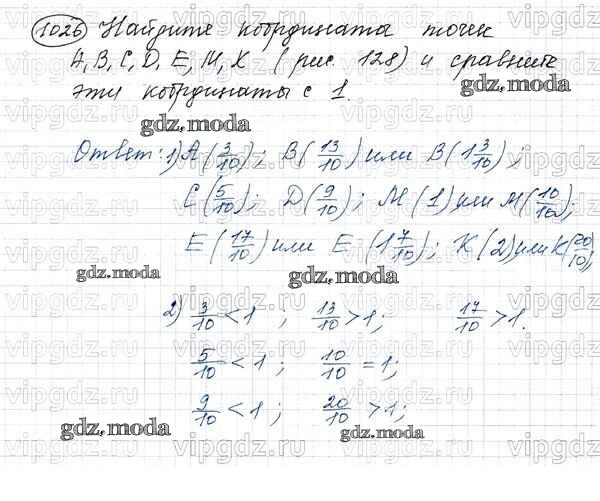 1026 Найдите координаты точек
A, B, C, D, E, M, K (рис. 128) и сравните
эти координаты с 1.
Ответ: 1) A(3/10); B(13/10) или B(1 3/10);
C(5/10); D(9/10); M(1) или M(10/10);
E(17/10) или E(1 7/10); K(2) или K(20/10);
2) 3/10 < 1; 13/10 > 1; 17/10 > 1.
5/10 < 1; 10/10 = 1;
9/10 < 1; 20/10 > 1;
gdz.moda
vipgdz.ru